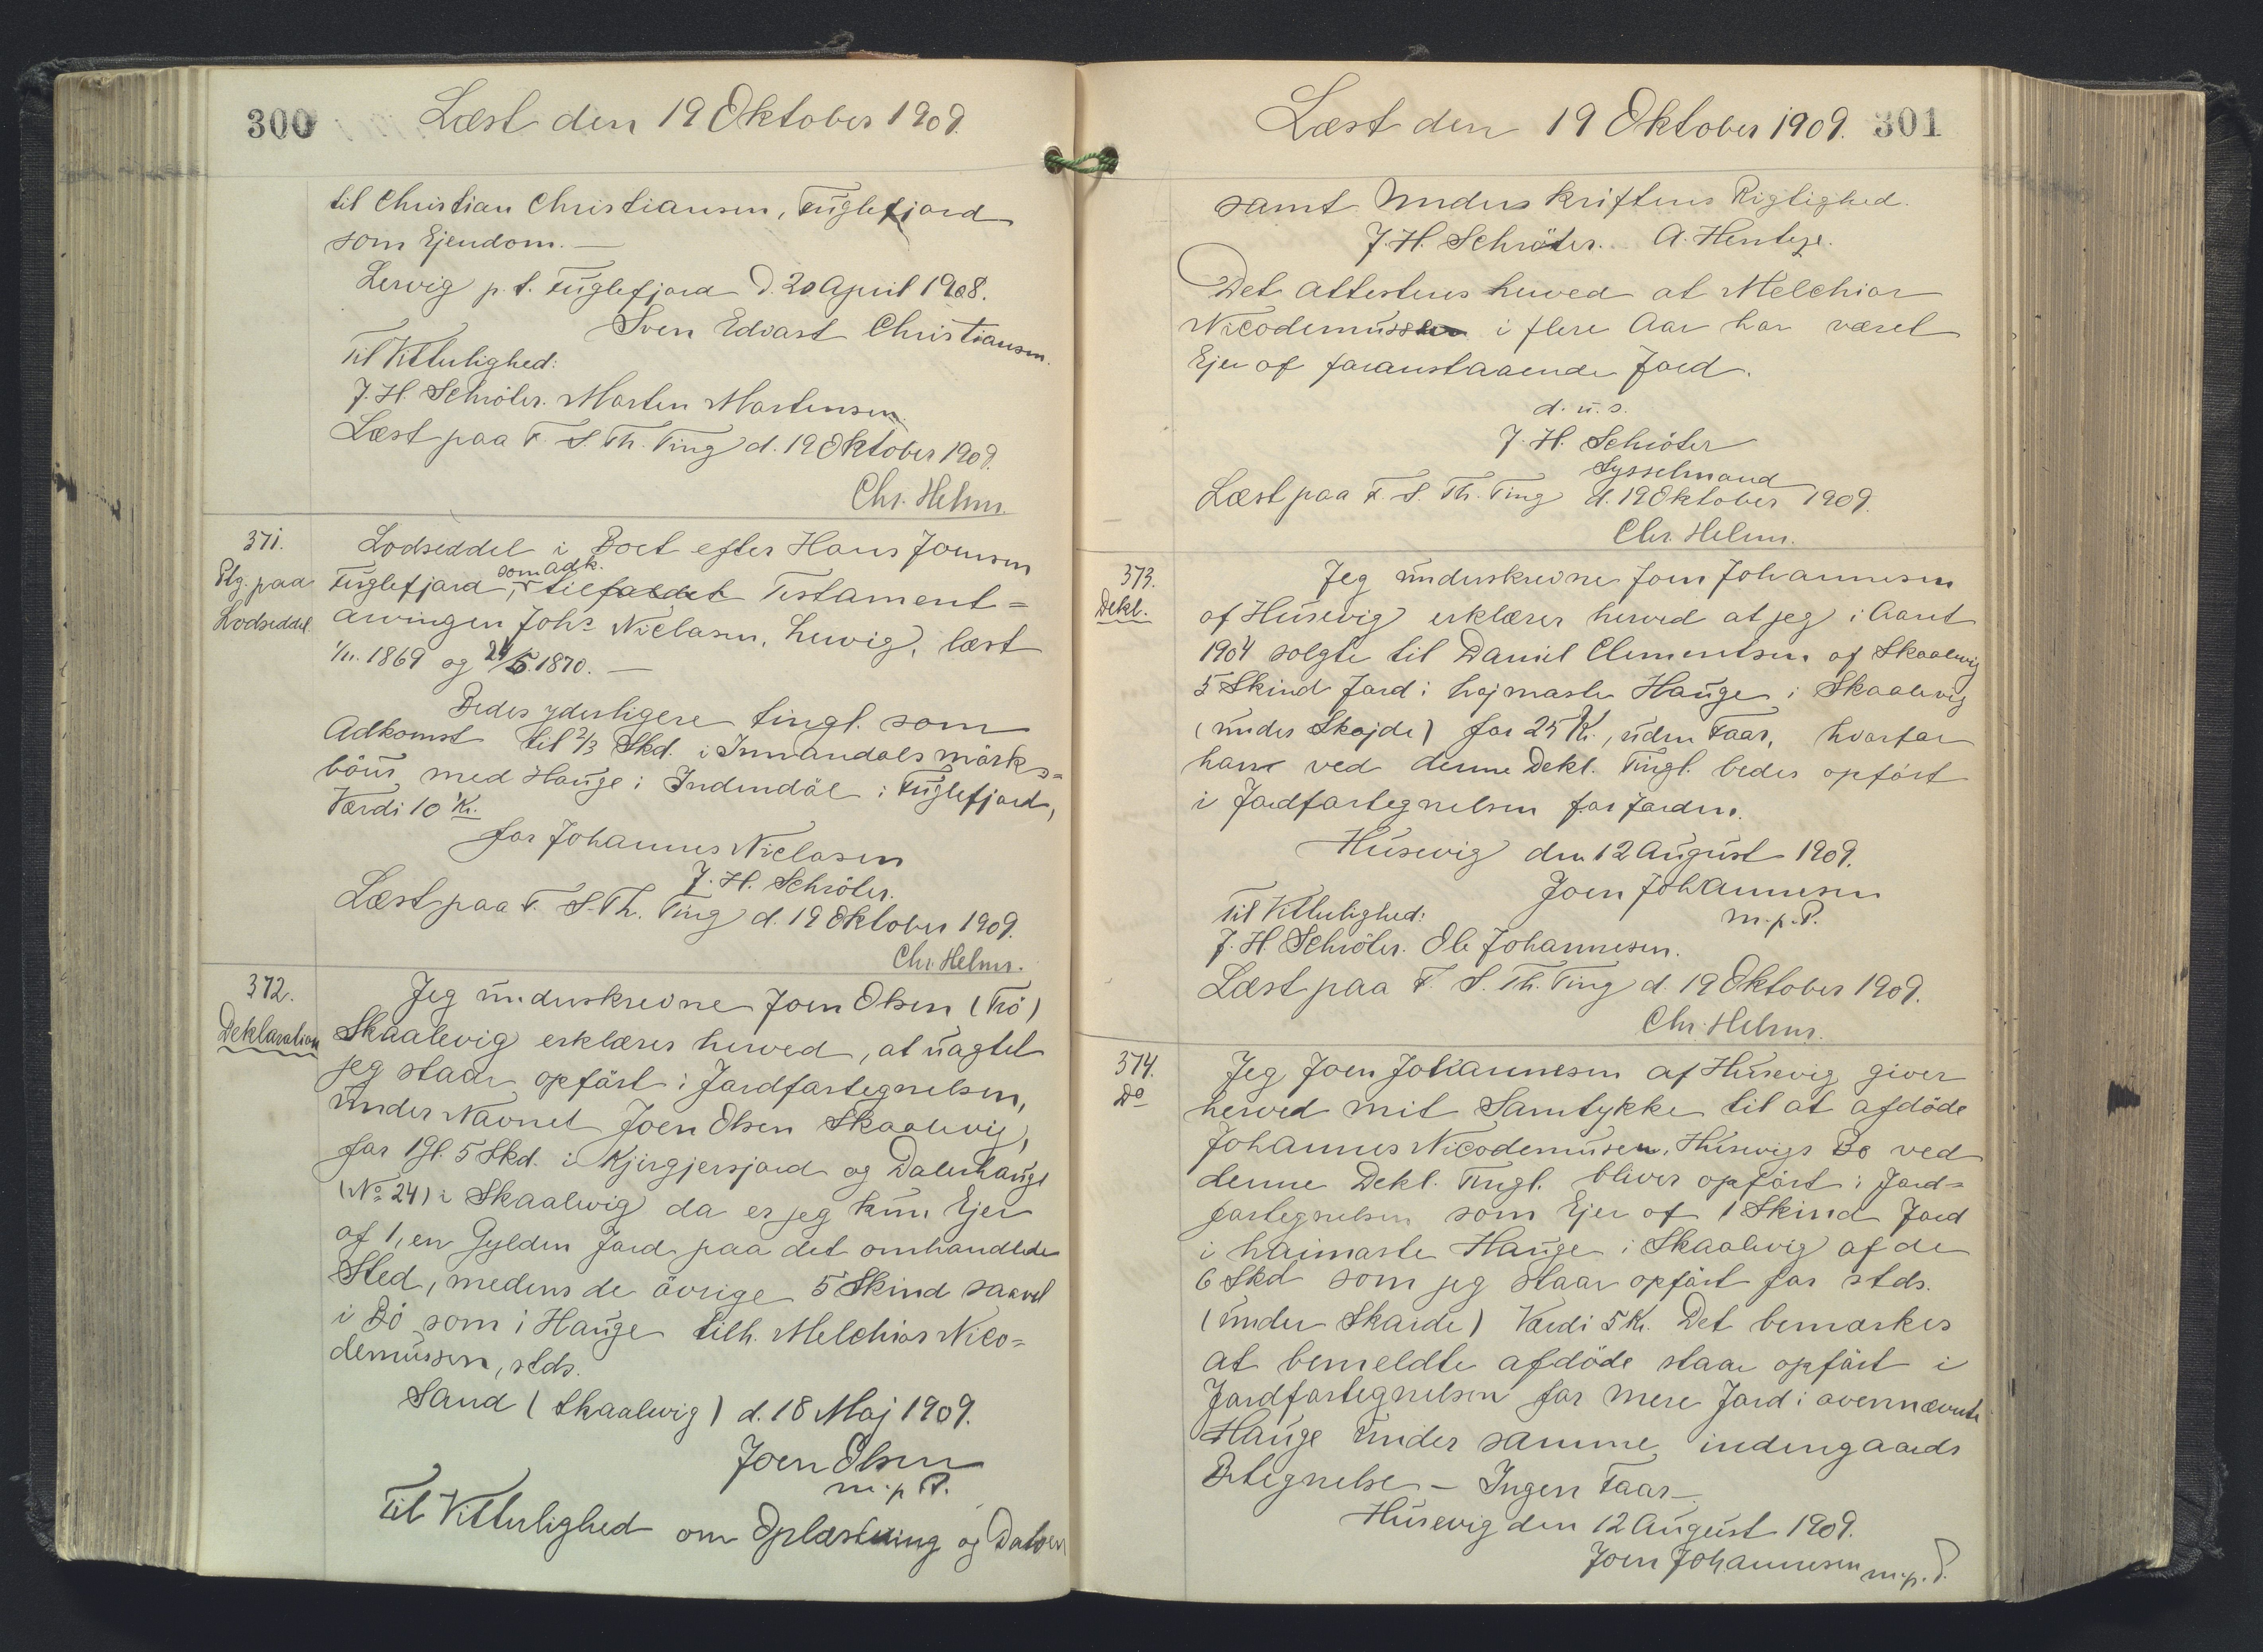 300
Læst den 19 Oktober 1909.
til Christian Christiansen, Fuglefjord
som Ejendom. —
Lervig p. t. Fuglefjord d. 20 April 1908.
Sven Edvart Christiansen.
Til Vitterlighed:
J. H. Schröter. Morten Mortensen.
Læst paa F. S. Th. Ting d. 19 Oktober 1909.
Chr. Helms.
371.
Ptg. paa
Lodseddel
Lodseddel i Boet efter Hans Joensen
som Adk.
Fuglefjord, tilfaldet Testament-
arvingen Johs Niclasen, Lervig, læst
1/11. 1869 og 24/5. 1870. —
Bedes yderligere tingl. som
Adkomst til 2/3 Skd. i Innandals mörks-
böur med Hauge i Indendal i Fuglefjord,
Værdi 10 Kr.
for Johannes Niclasen
J. H. Schröter.
Læst paa F. S. Th. Ting d. 19 Oktober 1909.
Chr. Helms.
372.
Deklaration
Jeg underskrevne Joen Olsen (Trö)
Skaalevig erklærer herved, at uagtet
jeg staar opfört i Jordfortegnelsen,
under Navnet Joen Olsen Skaalevig,
for 1 Gl. 5 Skd. i Kjirgjersjord og Dalerhauge
(No 24) i Skaalevig da er jeg kun Ejer
af 1, en Gylden Jord paa det omhandlede
Sted, medens de övrige 5 Skind saavel
i Bö som i Hauge tilh. Melchior Nico-
demussen, stds.
Sand (Skaalevig) d. 18 Maj 1909.
Joen Olsen
m. p. P.
Til Vitterlighed om Oplæsning og Datoen
Læst den 19 Oktober 1909.
301
samt Underskriftens Rigtighed.
J. H. Schröter. A. Hentze.
Det attesteres herved at Melchior
Nicodemussen i flere Aar har været
Ejer af foranstaaende Jord.
d. u. s.
J. H. Schröter
Sysselmand
Læst paa F. S. Th. Ting d. 19 Oktober 1909.
Chr. Helms.
373.
Dekl.
Jeg underskrevne Joen Johannesen
af Husevig erklærer herved at jeg i Aaret
1904 solgte til Daniel Clementsen af Skaalevig
5 Skind Jord i hojmaste Hauge i Skaalevig
(under Skojde) for 25 Kr., uden Faar, hvorfor
han ved denne Dekl. Tingl. bedes opfört
i Jordfortegnelsen for Jorden.
Husevig den 12 August 1909.
Joen Johannesen
m. p. P.
Til Vitterlighed:
J. H. Schröter. Ole Johannesen.
Læst paa F. S. Th. Ting d. 19 Oktober 1909.
Chr. Helms.
374.
Do
Jeg Joen Johannesen af Husevig giver
herved mit Samtykke til at afdöde
Johannes Nicodemusen, Husevigs Bo ved
denne Dekl. Tingl. bliver opfört i Jord-
fortegnelsen som Ejer af 1 Skind Jord
i haimaste Hauge i Skaalevig af de
6 Skd som jeg staar opfört for stds.
(under Skarde) Værdi 5 Kr. Det bemærkes
at bemeldte afdöde staar opfört i
Jordfortegnelsen for mere Jord i ovennævnte
Hauge under samme indengaards
Betegnelse — Ingen Faar —.
Husevig den 12 August 1909.
Joen Johannesen m. p. P.